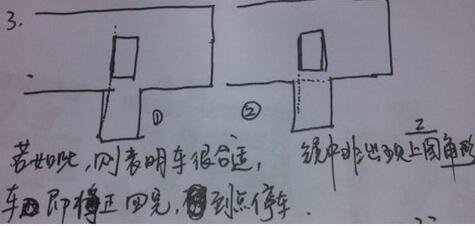 3.
① ②
若如此,则表明车很合适, 镜中非出现上图2角形
车即摆正回完,到点停车.